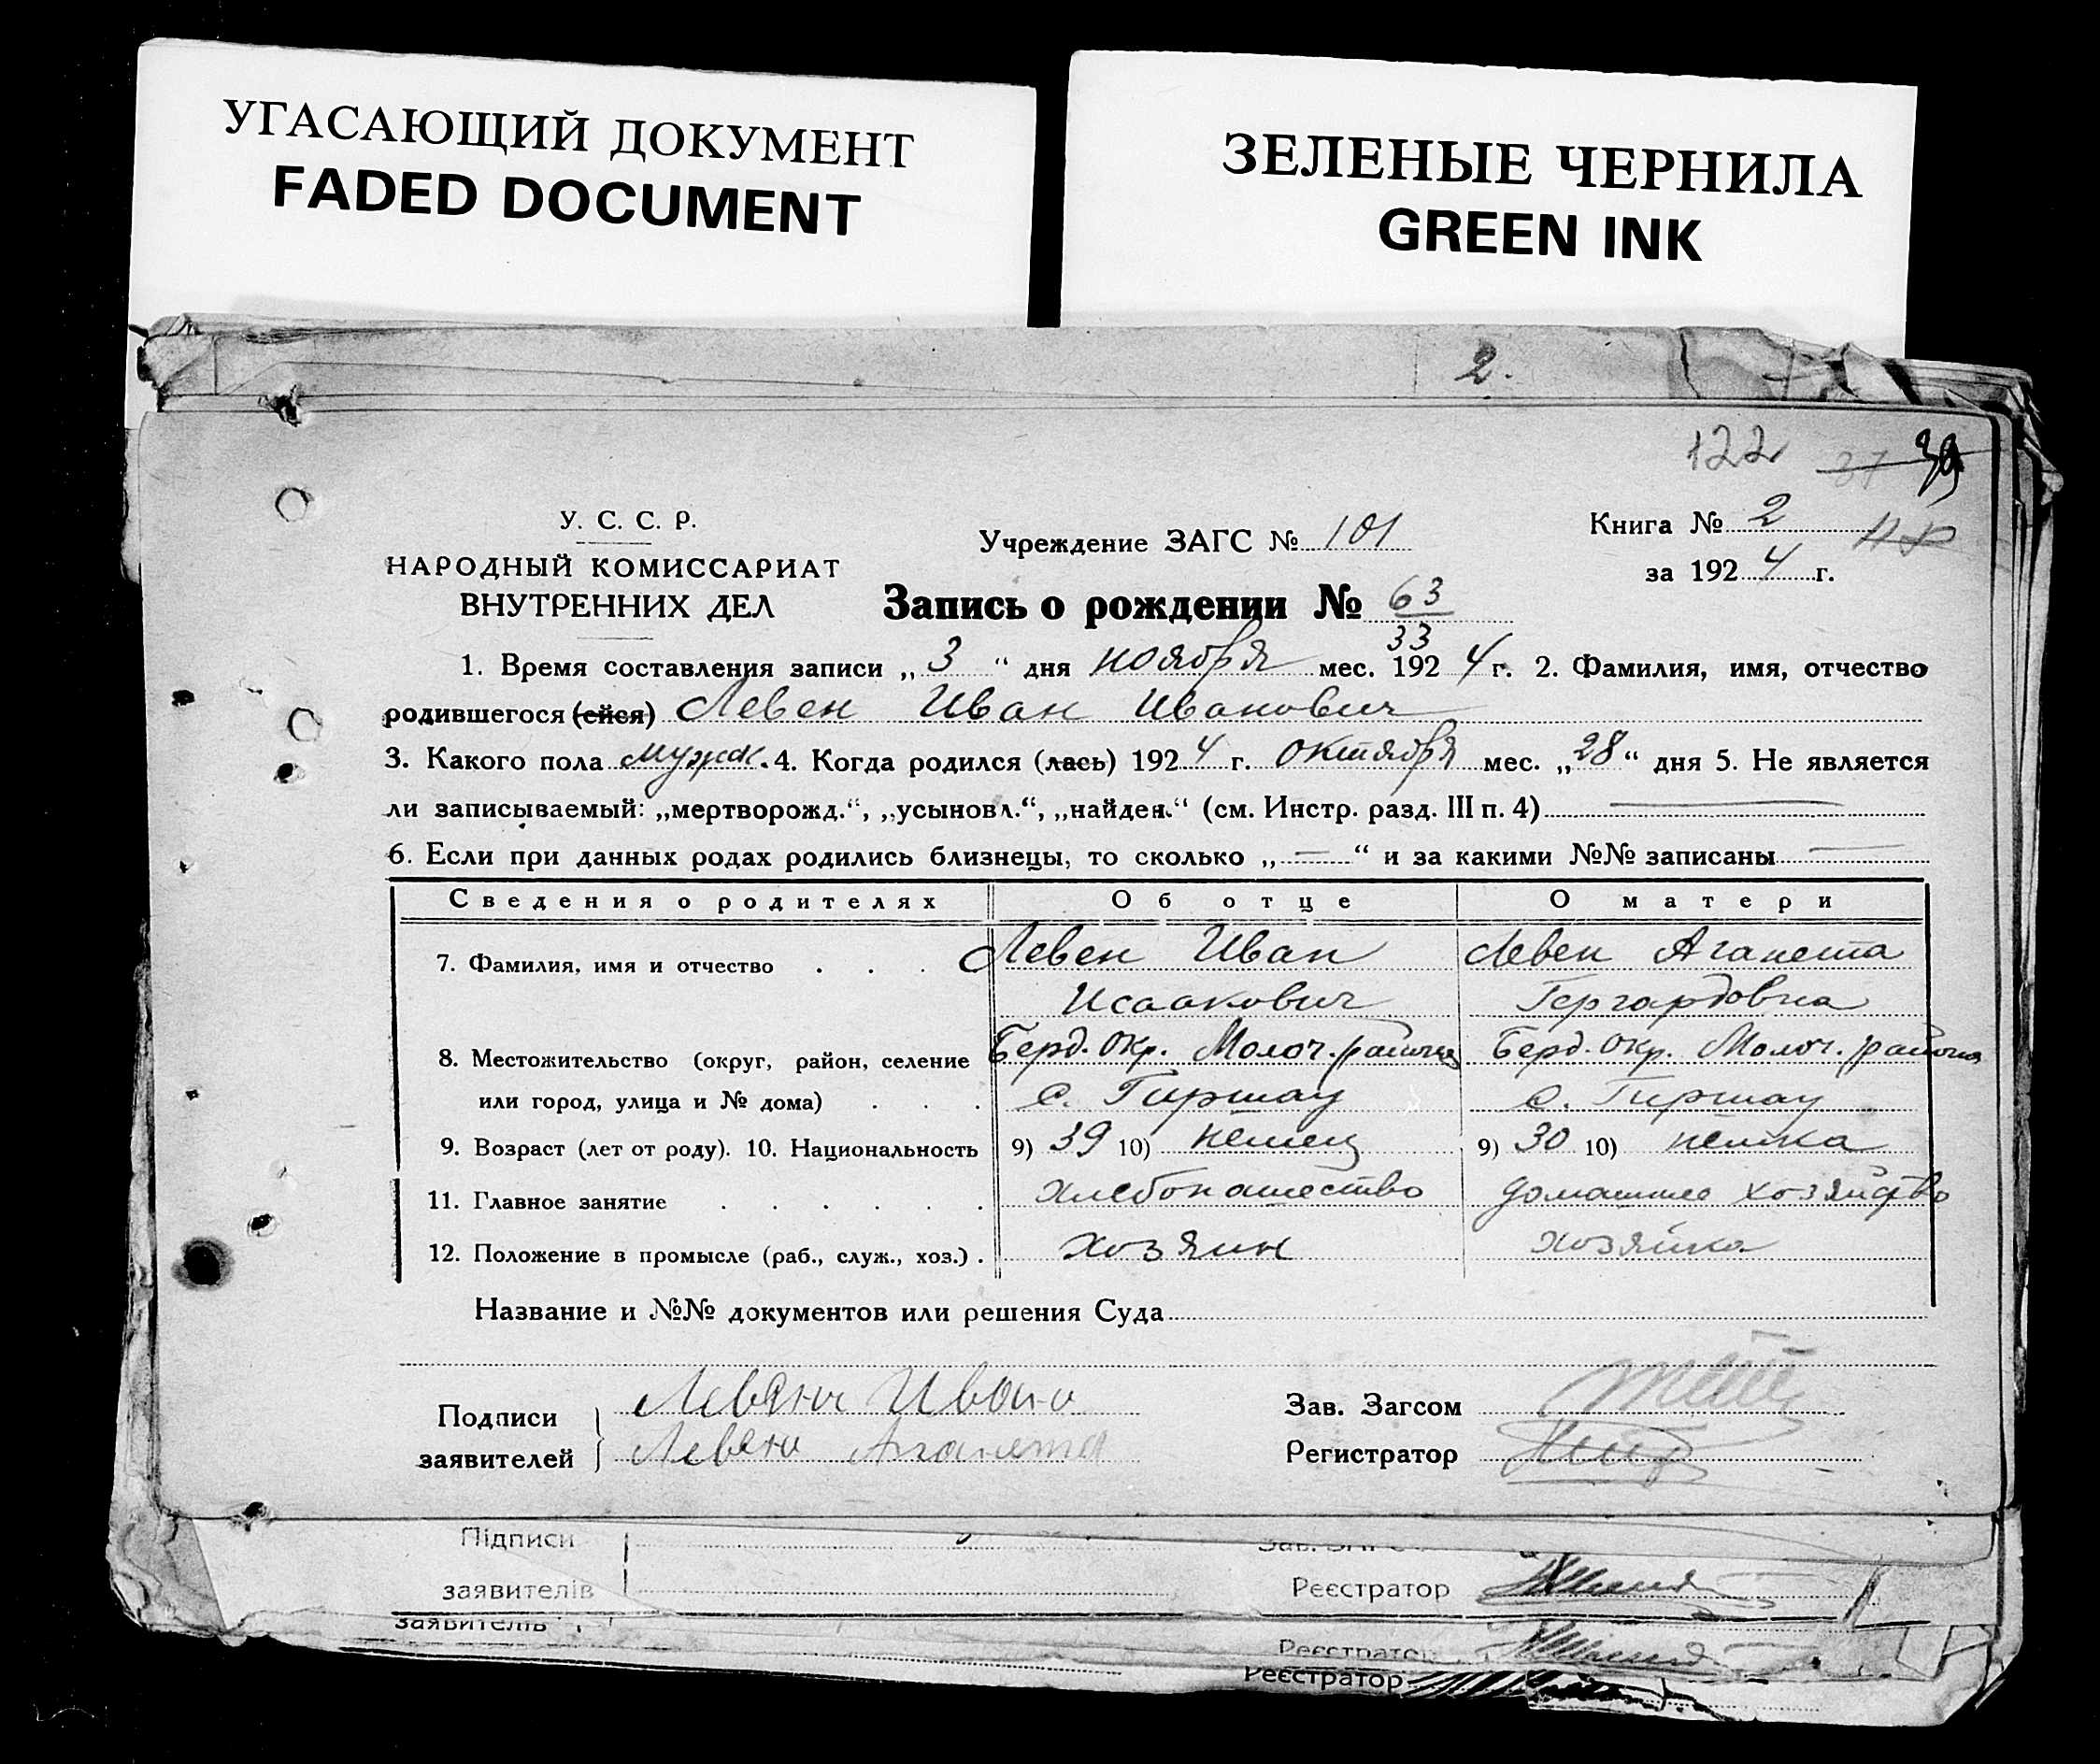 УГАСАЮЩИЙ ДОКУМЕНТ
FADED DOCUMENT
ЗЕЛЕНЫЕ ЧЕРНИЛА
GREEN INK
2.
122 37 39
У. С. С. Р.
НАРОДНЫЙ КОМИССАРИАТ
ВНУТРЕННИХ ДЕЛ
Учреждение ЗАГС № 101
Книга № 2
за 1924 г.
Запись о рождении № 63
33
1. Время составления записи „3“ дня ноября мес. 1924 г. 2. Фамилия, имя, отчество
родившегося (ейся) Левен Иван Иванович
3. Какого пола мужск. 4. Когда родился (лась) 1924 г. октября мес. „28“ дня 5. Не является
ли записываемый: „мертворожд.“, „усыновл.“, „найден.“ (см. Инстр. разд. III п. 4) —
6. Если при данных родах родились близнецы, то сколько „—“ и за какими №№ записаны —
Сведения о родителях Об отце О матери
7. Фамилия, имя и отчество . . . Левен Иван Левен Аганета
Исаакович Гергардовна
8. Местожительство (округ, район, селение Берд. окр. Молоч. района Берд. окр. Молоч. района
или город, улица и № дома) . . . с. Гиршау с. Гиршау
9. Возраст (лет от роду). 10. Национальность 9) 39 10) немец 9) 30 10) немка
11. Главное занятие . . . . . . хлебопашество домашнее хозяйство
12. Положение в промысле (раб., служ., хоз.) . хозяин хозяйка
Название и №№ документов или решения Суда
Подписи
заявителей
Левен Иван
Левен Аганета
Зав. Загсом
Регистратор
Підписи
заявителів
Реєстратор
заявителів
Реєстратор
Реєстратор